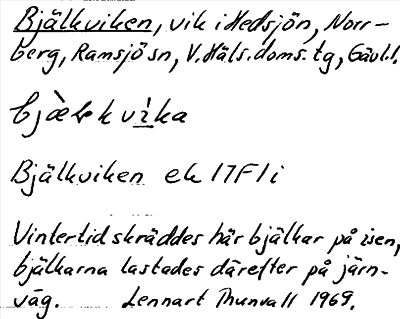 Bjälkviken, vik i Hedsjön, Norr-
berg, Ramsjö sn, V. Häls. doms. tg, Gävl.l.
bjæ̀lkvìka
Bjälkviken ek 17F1i
Vintertid skräddes här bjälkar på isen,
bjälkarna lastades därefter på järn-
väg. Lennart Thunvall 1969.